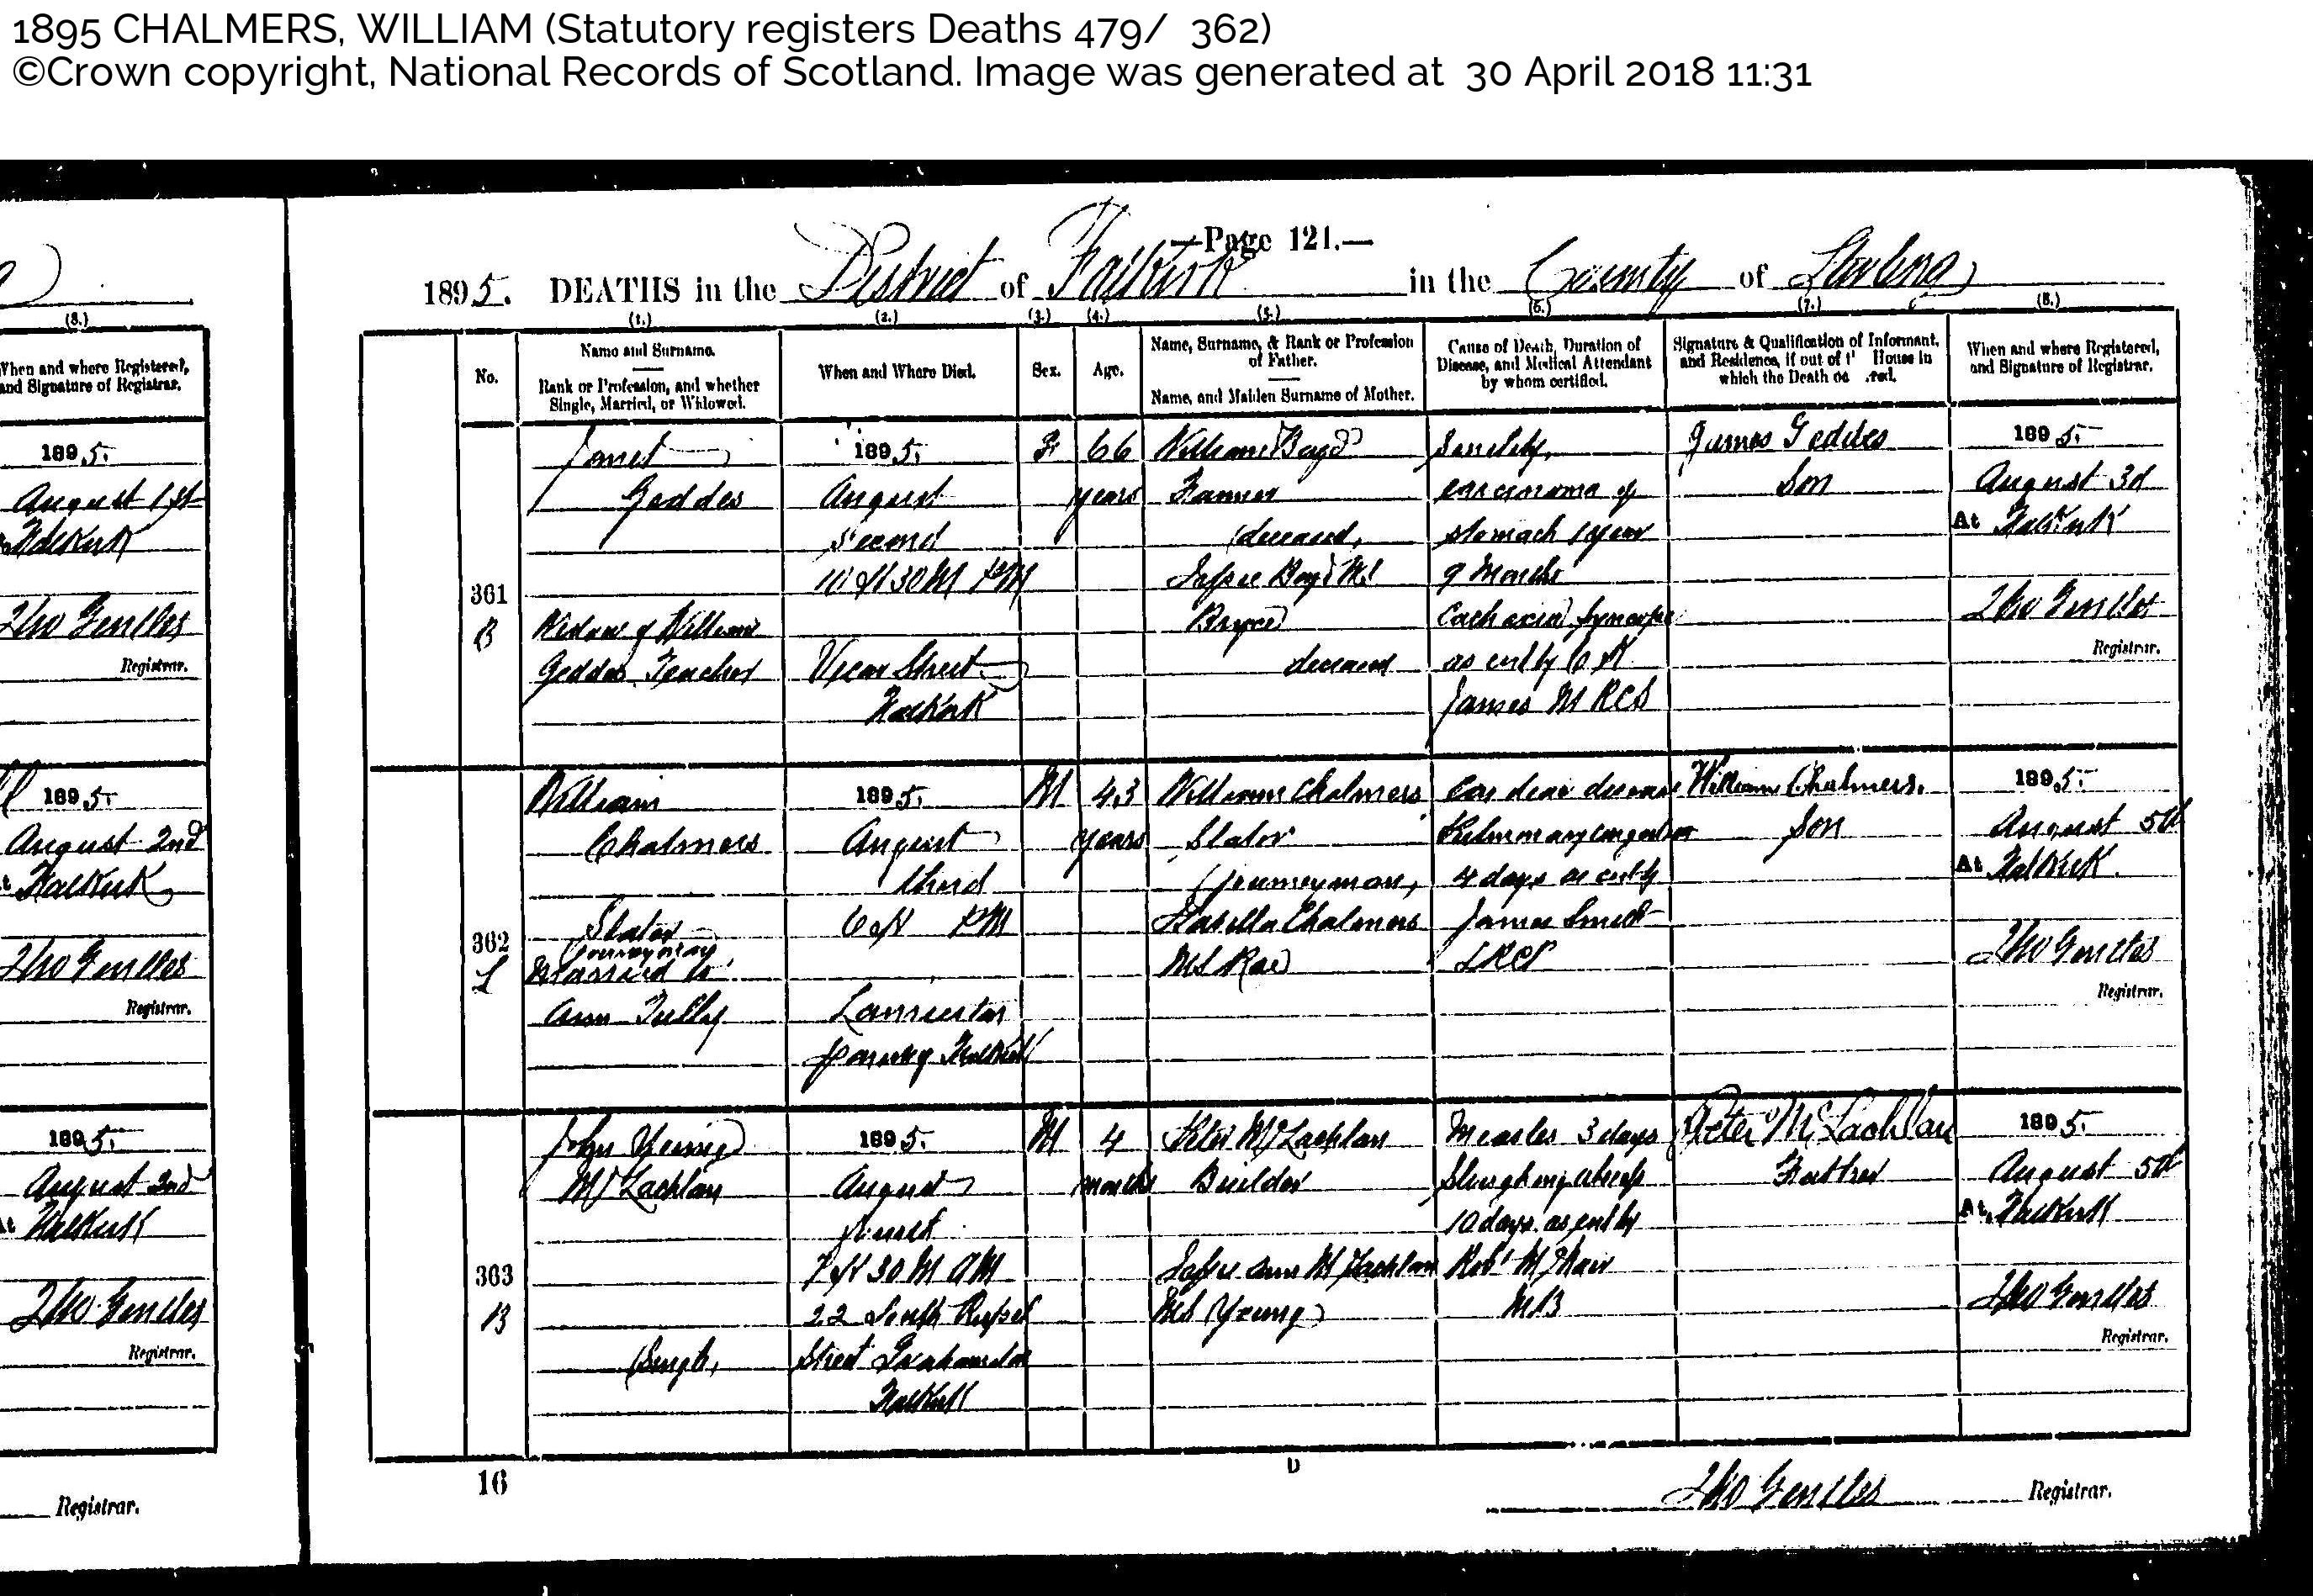 1895 CHALMERS, WILLIAM (Statutory registers Deaths 479/ 362)
©Crown copyright, National Records of Scotland. Image was generated at 30 April 2018 11:31
—Page 121.—
1895. DEATHS in the District of Falkirk in the County of Stirling
(8.)
When and where Registered,
and Signature of Registrar.
1895.
August 1st
Falkirk
Tho Gentles
Registrar.
1895.
August 2nd
At Falkirk
Tho Gentles
Registrar.
1895.
August 2nd
At Falkirk
Tho Gentles
Registrar.
Registrar.
(1.) (2.) (3.) (4.) (5.) (6.) (7.) (8.)
No.
Name and Surname.
Rank or Profession, and whether
Single, Married, or Widowed.
When and Where Died.
Sex.
Age.
Name, Surname, & Rank or Profession
of Father.
Name, and Maiden Surname of Mother.
Cause of Death, Duration of
Disease, and Medical Attendant
by whom certified.
Signature & Qualification of Informant,
and Residence, if out of House in
which the Death
When and where Registered,
and Signature of Registrar.
361
B
Janet
Geddes
Widow of William
Geddes Teacher
1895.
August
Second
10 H 30 M PM
Vicar Street
Falkirk
F
66
years
William Boyd
Farmer
(deceased)
Boyd MS
Bryce
deceased
Senility
carcinoma of
stomach 1 year
9 Months
Cachexia Syncope
as cert by
James MRCS
James Geddes
Son
1895.
August 3d
At Falkirk
Tho Gentles
Registrar.
362
L
William
Chalmers
Slater
(Journeyman)
Married to
Ann Tully
1895.
August
third
6 H PM
Falkirk
M
43
years
William Chalmers
Slater
(journeyman)
Isabella Chalmers
MS Rae
Cardiac disease
Pulmonary congestion
4 days as cert by
James Smith
LRCP
William Chalmers.
Son
1895.
August 5th
At Falkirk.
Tho Gentles
Registrar.
363
B
John Young
McLachlan
(Single)
1895.
August
7 H 30 M AM
22 South Russel
Street Grahamston
Falkirk
M
4
months
Peter McLachlan
Builder
Ann McLachlan
MS Young
Measles 3 days
Sloughing abscess
10 days. as cert by
Robt McNair
MB
Peter McLachlan
Father
1895.
August 5th
At Falkirk
Tho Gentles
Registrar.
16
D
Tho Gentles Registrar.